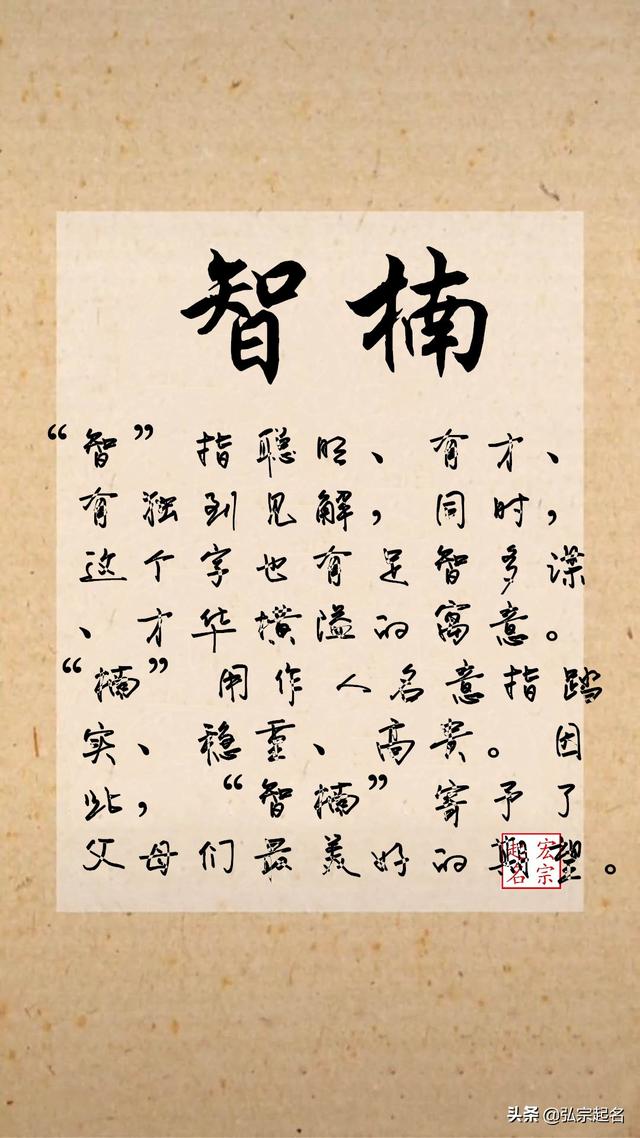 智楠
“智”指聪明、有才、
有独到见解，同时，
这个字也有足智多谋
、才华横溢的寓意。
“楠”用作人名意指踏
实、稳重、高贵。因
此，“智楠”寄予了
父母们最美好的期望。
宏宗起名
头条 @弘宗起名